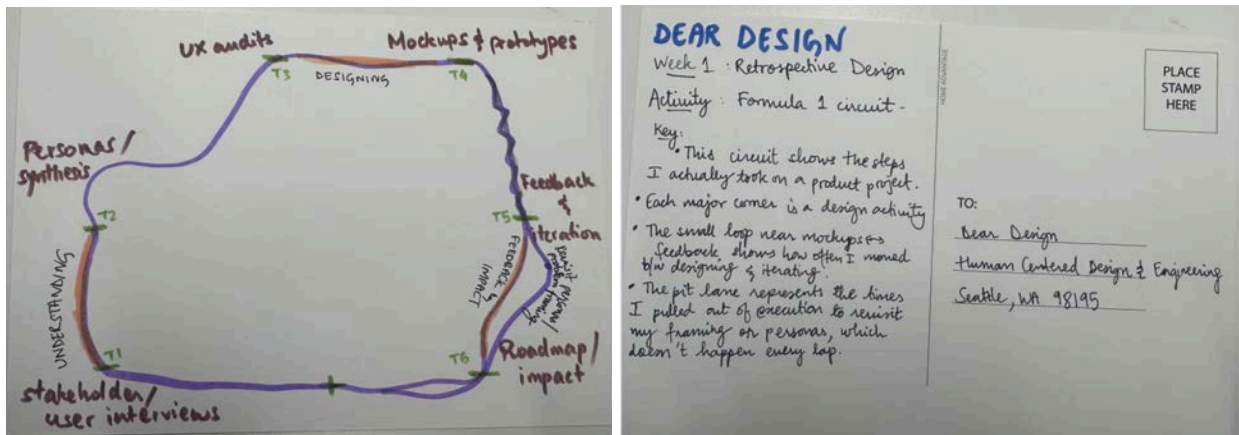 UX audits
Mockups & prototypes
T3
T4
DESIGNING
Personas/
synthesis
Feedback
&
iteration
T5
T2
FEEDBACK &
IMPACT
revisit personas/
problem framing
UNDERSTANDING
T1
T6
Roadmap/
impact
stakeholder/
user interviews
DEAR DESIGN
Week 1 : Retrospective Design
Activity : Formula 1 circuit -
Key:
• This circuit shows the steps
I actually took on a product project.
• Each major corner is a design activity
• The small loop near mockups ↔
feedback shows how often I moved
b/w designing & iterating.
• The pit lane represents the times
I pulled out of execution to revisit
my framing or personas, which
doesn't happen every lap.
HOME ADVANTAGE
PLACE
STAMP
HERE
TO:
Dear Design
Human Centered Design & Engineering
Seattle, WA 98195